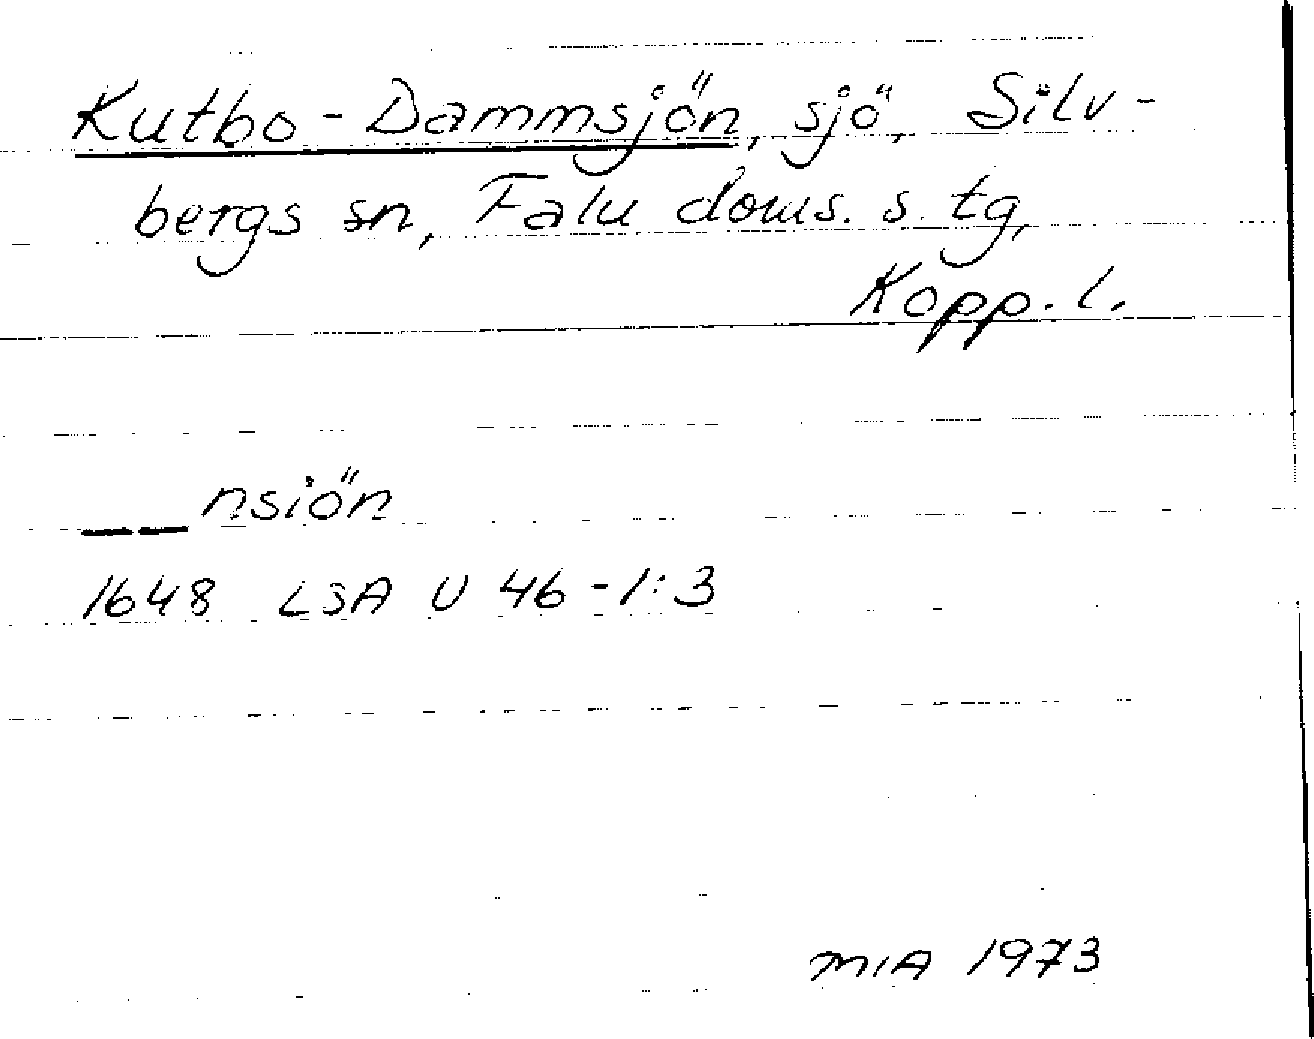 Kutbo-Dammsjön, sjö, Silv-
bergs sn, Falu doms. s. tg,
Kopp. l.
__ nsiön
1648 LSA U 46-1:3
MIA 1973